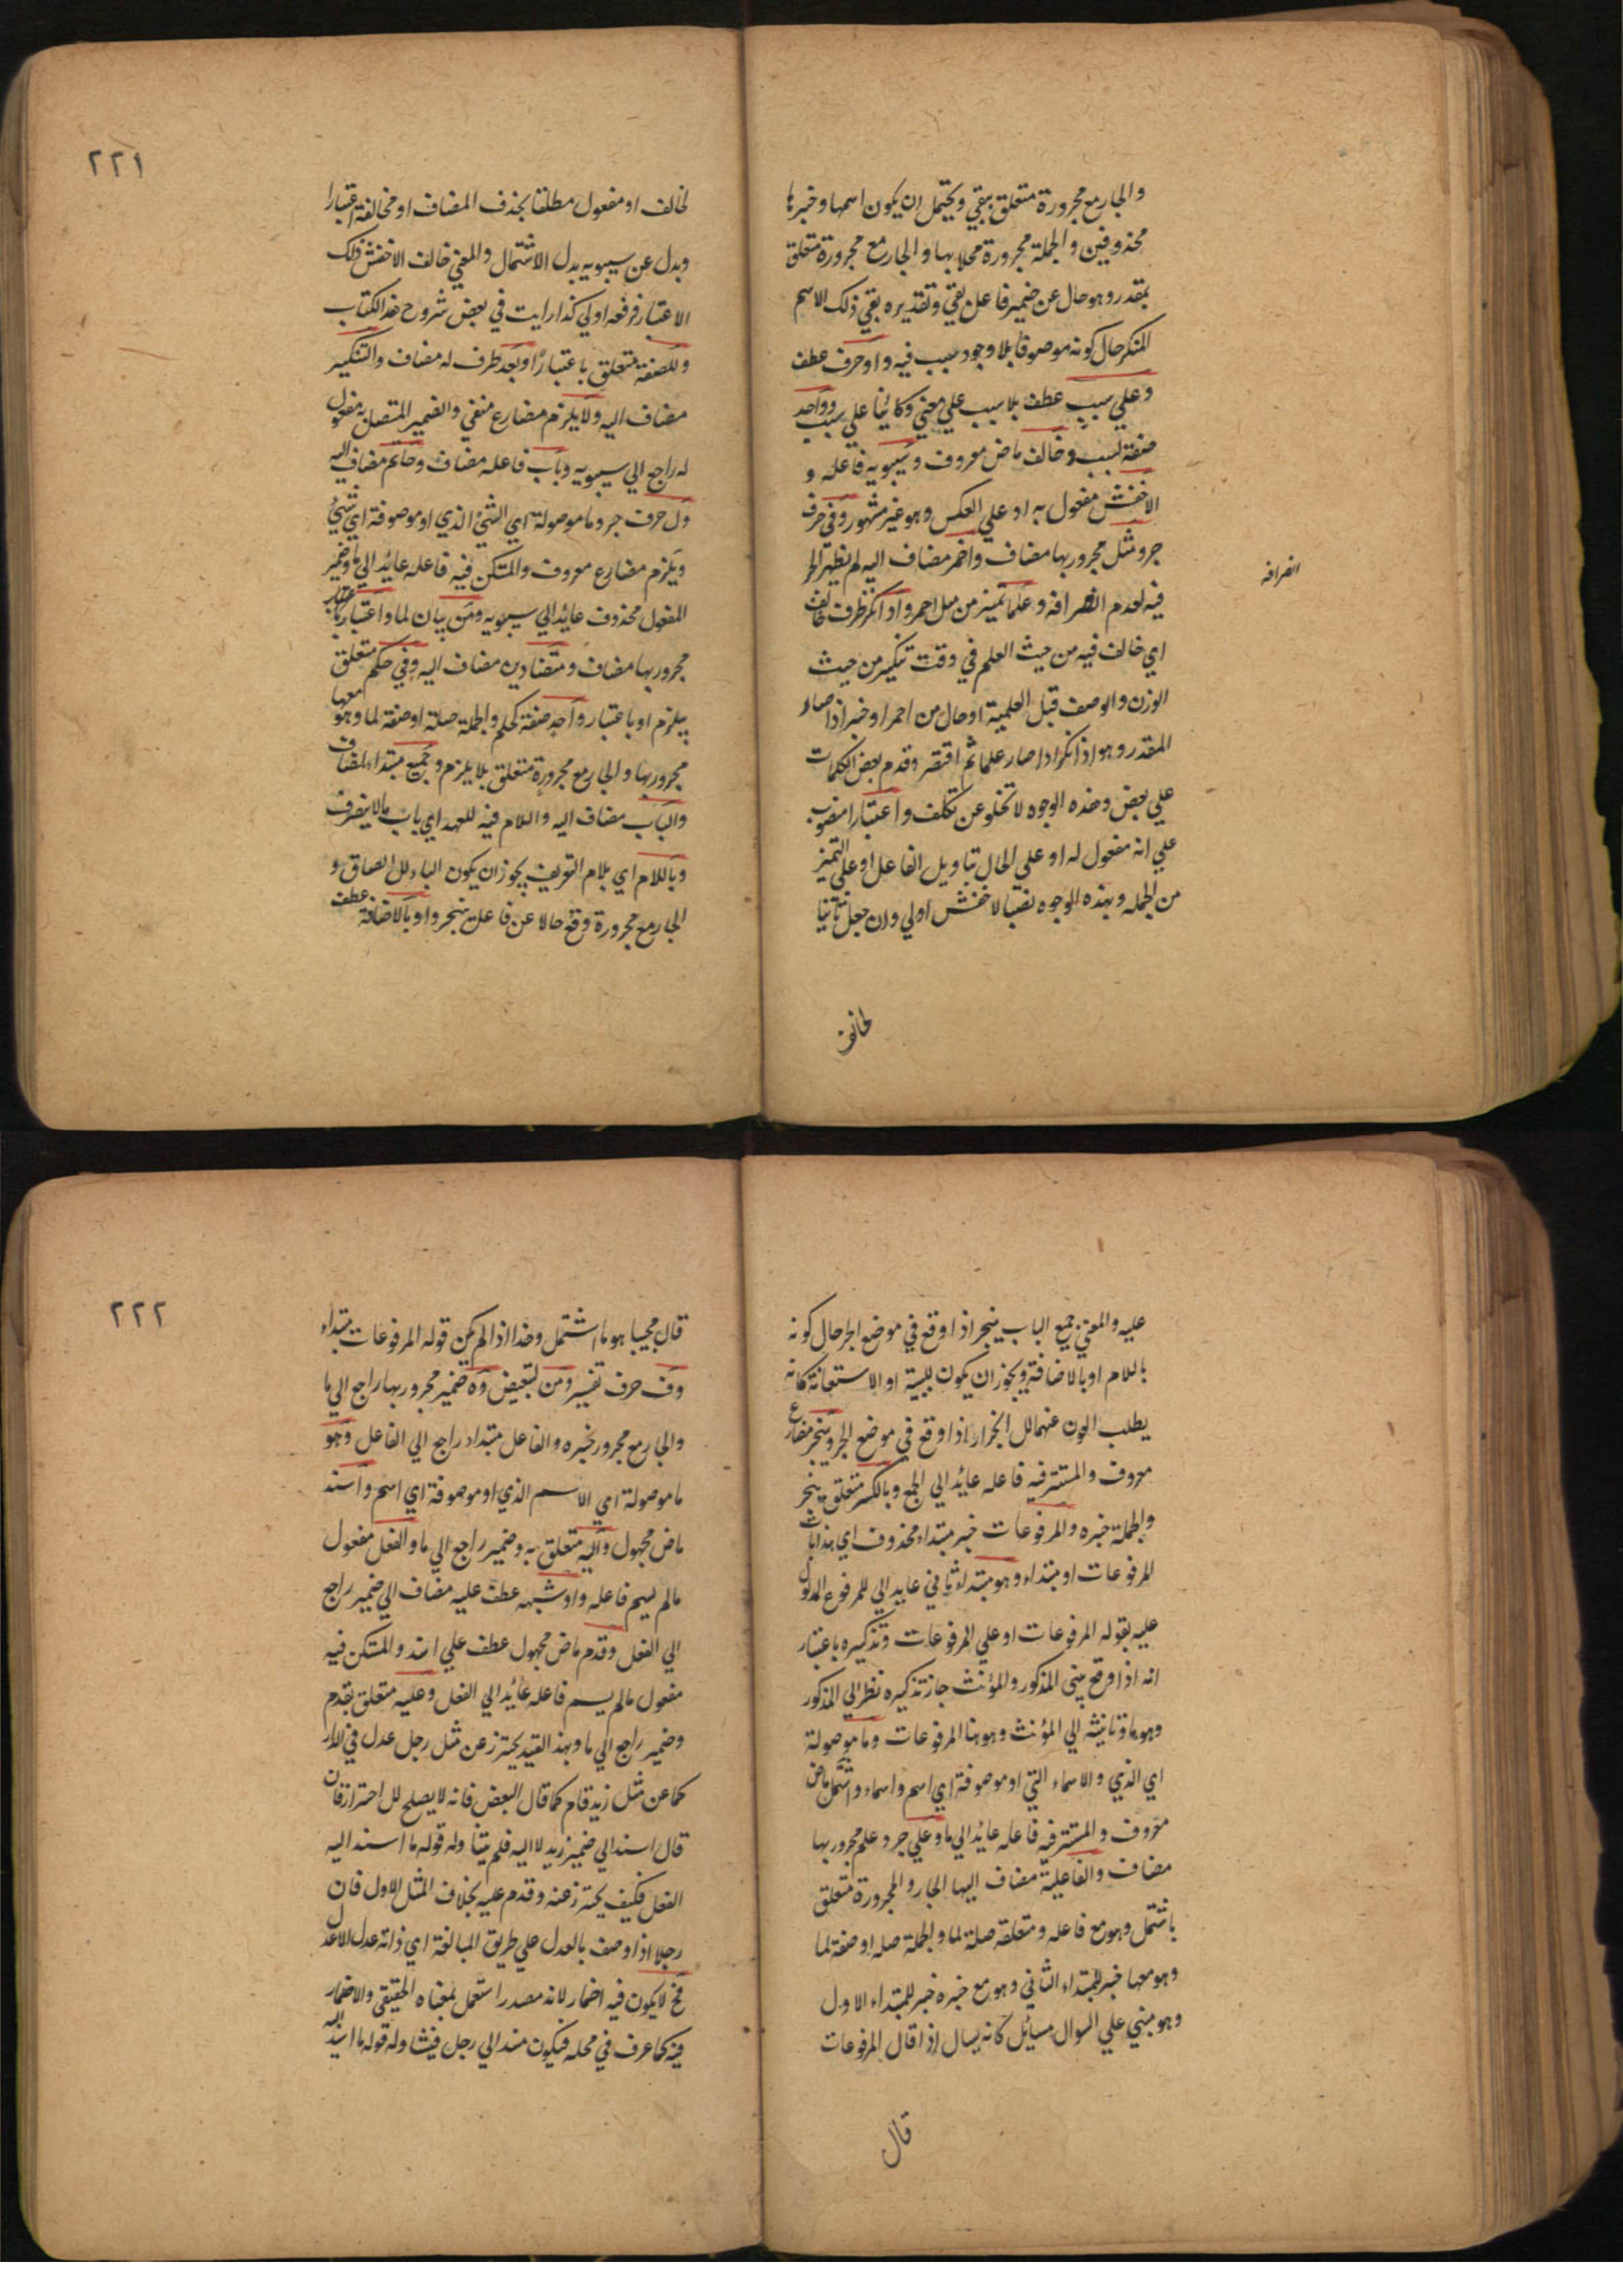 والجار مع مجرورة متعلق ببقي ويحتمل ان يكون اسمها وخبرها
محذوفين والجملة مجرورة محلا بها والجار مع مجرورة متعلق
بمقدر وهو حال عن ضمير فاعل بقي وتقديره بقي ذلك الاسم
المنكر حال كونه موصوفا بلا وجود سبب فيه واو حرف عطف
وعلي سبب عطف بلا سبب علي معني وكائنا علي سبب وواحد
صفة لسبب وخالف ماض معروف وسيبويه فاعله و
الاخفش مفعول به او علي العكس وهو غير مشهور وفي حرف
جر ومثل مجرور بها مضاف واحمر مضاف اليه لم يظهر الجر
فيه لعدم انصرافه وعلما تميز من مثل احمر واذا نكر ظرف خالف
انصرافه
اي خالف فيه من حيث العلم في وقت تنكير من حيث
الوزن والوصف قبل العلمية او حال من احمر او خبر اذا صار
المقدر وهو اذا نكر اذا صار علما ثم اقتصر وقدم بعض الكلمات
علي بعض وهذه الوجوه لا تخلو عن تكلف واعتبارا منصوب
علي انه مفعول له او علي الحال بتاويل الفاعل او علي التميز
من الجمله وبهذه الوجوه نصب الاخفش اولي وان جعل ثانيا
لخالف
٢٢١
لخالف او مفعول مطلقا بحذف المضاف او مخالفة اعتبارا
وبدل عن سيبويه بدل الاشتمال والمعني خالف الاخفش ذلك
الاعتبار فرفعه اولي كذا رايت في بعض شروح هذا الكتاب
وللصفة متعلق باعتبارا وبعد ظرف له مضاف والتنكير
مضاف اليه ولا يلزم مضارع منفي والضمير المتصل به مفعول
له راجع الي سيبويه وباب فاعله مضاف وحاتم مضاف اليه
ول حرف جر وما موصولة اي الشئ الذي او موصوفة اي شئ
ويلزم مضارع معروف والمتسكن فيه فاعله عائد الي ما وضمير
المفعول محذوف عائد الي سيبويه ومن بيان لما واعتبار
مجرور بها مضاف ومتضادين مضاف اليه وفي حكم متعلق
بيلزم او باعتبار واحد صفة حكم والجملة صلة او صفة لما وهو معها
مجرور بها والجار مع مجرورة متعلق بلا يلزم وجميع مبتداء مضاف
والباب مضاف اليه واللام فيه للعهد اي باب ما لا ينصرف
وباللام اي بلام التعريف يجوز ان يكون الباء لل الصاق و
الجار مع مجرورة وقع حالا عن فاعل ينجر واو بالاضافة عطف
عليه والمعني جميع الباب ينجر اذا وقع في موضع الجر حال كونه
باللام او بالاضافة ويجوز ان يكون للسببية او الاستعانة كانه
يطلب العون عنهما لل انجرار اذا وقع في موضع الجر وينجر مضارع
معروف والمستتر فيه فاعله عائد الي الجمع وبالكسر متعلق بينجر
والجملة خبره والمرفوعات خبر مبتداء محذوف اي هذا باب
المرفوعات او مبتداء وهو مبتداء ثاني عايد الي للمرفوع المدلول
عليه بقوله المرفوعات او علي المرفوعات وتذكيره باعتبار
انه اذا وقع بين المذكور والمؤنث جاز تذكيره نظر الي المذكور
وهو ما وتانيثه الي المؤنث وهو هنا المرفوعات وما موصولة
اي الذي والاسماء التي او موصوفة اي اسم واسماء واشتمل ماض
معروف والمستتر فيه فاعله عائد الي ما وعلي جر وعلم مجرور بها
مضاف والفاعلية مضاف اليها الجار والمجرورة متعلق
باشتمل وهو مع فاعله ومتعلقه صلة لما والجملة صله او صفة لما
وهو معها خبر للمبتداء الثاني وهو مع خبره خبر للمبتداء الاول
وهو مبني علي السوال مسائل كانه يسال اذا قال المرفوعات
قال
٢٢٢
قال مجيبا هو ما اشتمل وهذا اذا لم يكن قوله المرفوعات مبتداء
وف حرف تفسير ومن لتبعيض وه ضمير مجرور بها راجع الي ما
والجار مع مجرور خبره والفاعل مبتداء راجع الي الفاعل وهو
ما موصولة اي الاسم الذي او موصوفة اي اسم واسند
ماض مجهول واليه متعلق به وضمير راجع الي ما والفعل مفعول
مالم يسم فاعله واو شبهه عطف عليه مضاف الي ضمير راجع
الي الفعل وقدم ماض مجهول عطف علي اسند والمتسكن فيه
مفعول مالم يسم فاعله عائد الي الفعل وعليه متعلق بقدم
وضمير راجع الي ما وبهذا القيد يحترز عن مثل رجل عدل في الدار
كما عن مثل زيد قام كما قال البعض فانه لا يصلح لل احتراز فان
قال اسند الي ضمير زيد لا اليه فلم يتنا وله قوله ما اسند اليه
الفعل فكيف يحترز عنه وقدم عليه بخلاف المثل الاول فان
رجلا اذا وصف بالعدل علي طريق المبالغة اي ذاته عدل لا عدل
فح لا يكون فيه اضمار لانه مصدر استعمل بمعناه الحقيقي والاضمار
فيه كما عرف في محله فيكون مسندا الي رجل فيتنا وله قوله ما اسند اليه